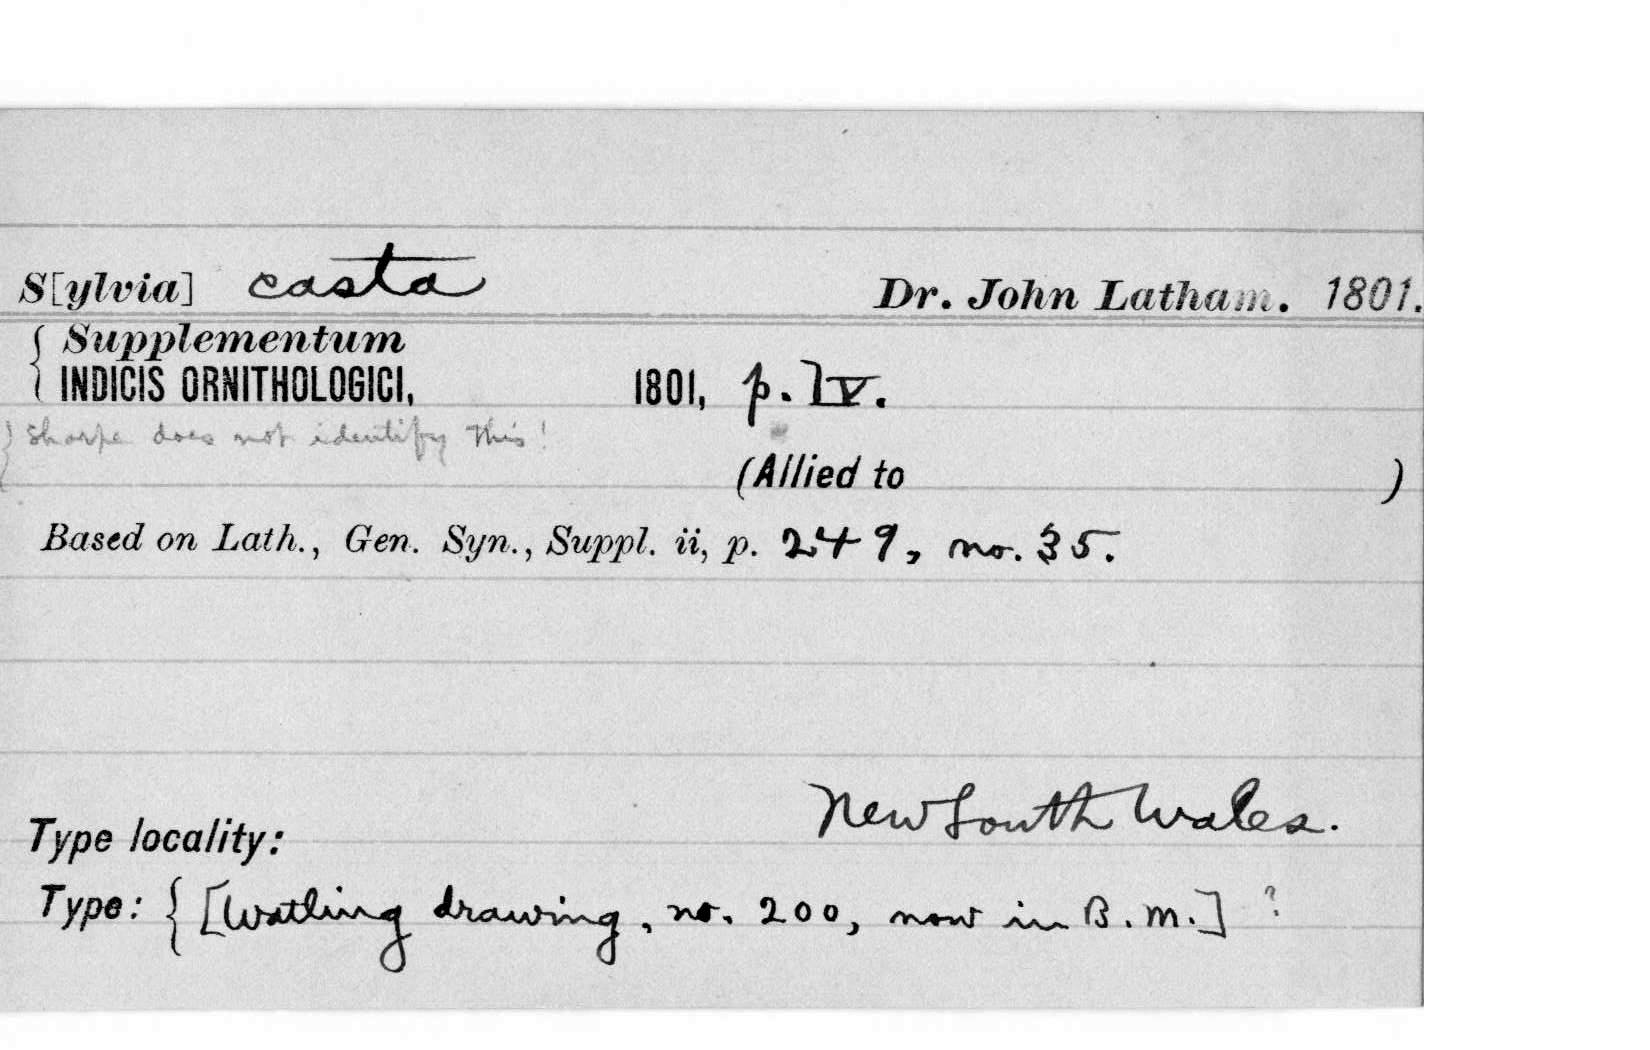 S[ylvia] casta Dr. John Latham. 1801.
{ Supplementum
INDICIS ORNITHOLOGICI, 1801, p. lv.
} Sharpe does not identify this!
(Allied to )
Based on Lath., Gen. Syn., Suppl. ii, p. 249, no. 35.
New South Wales.
Type locality:
Type: { [Watling drawing, no. 200, now in B.M.] ?